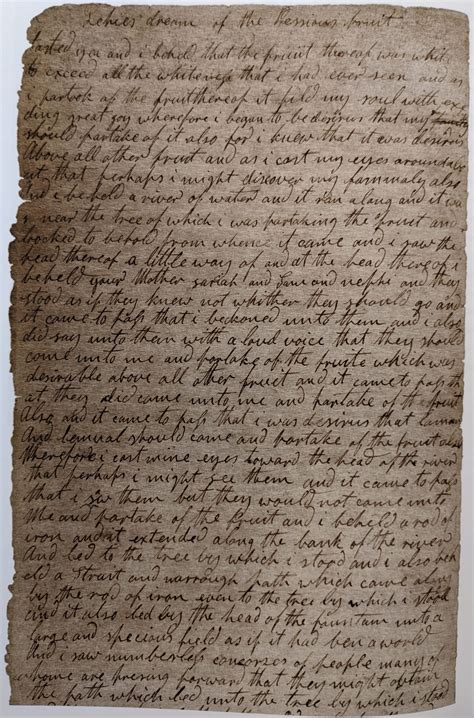 Lehies dream of the Pressious fruit
tasted yea and i beheld that the fruit thereof was whit
to exceed all the whiteness that i had ever seen and as
i partook of the fruit thereof it fild my soul with exe
ding great goy wherefore i began to be desirus that my
should partake of it also for i knew that it was desirus
Above all other fruit and as i cast my eyes around a
ut that perhaps i might discover my fammaly also
And i beheld a river of water and it ran along and it w
s near the tree of which i was partaking the fruit an
looked to behold from whence it came and i saw the
head thereof a little way of and at the head thereof i
beheld your Mother sariah and Sam and nephi and they
stood as if they knew not whither they should go and
it came to pass that i beckoned unto them and i also
did say unto them with a loud voice that they should
come unto me and partake of the fruite which was
desirable above all other fruit and it came to pass th
at they did came unto me and partake of the fruit
Also and it came to pass that i was desirus that Laman
And Lemual should came and partake of the fruit also
therefore i cast mine eyes toward the head of the river
that perhaps i might see them and it came to pass
that i saw them but they would not came unto
Me and partake of the fruit and i beheld a rod of
iron and it extended along the bank of the river
And led to the tree by which i stood and i also beh
eld a Strait and narrough path which came along
by the rod of iron even to the tree by which i stood
and it also led by the head of the fountain unto a
large and specious field as if it had ben a world
And i saw numberless concorses of people many of
whome are presing forward that they might obtain
the path which led unto the tree by which i stood